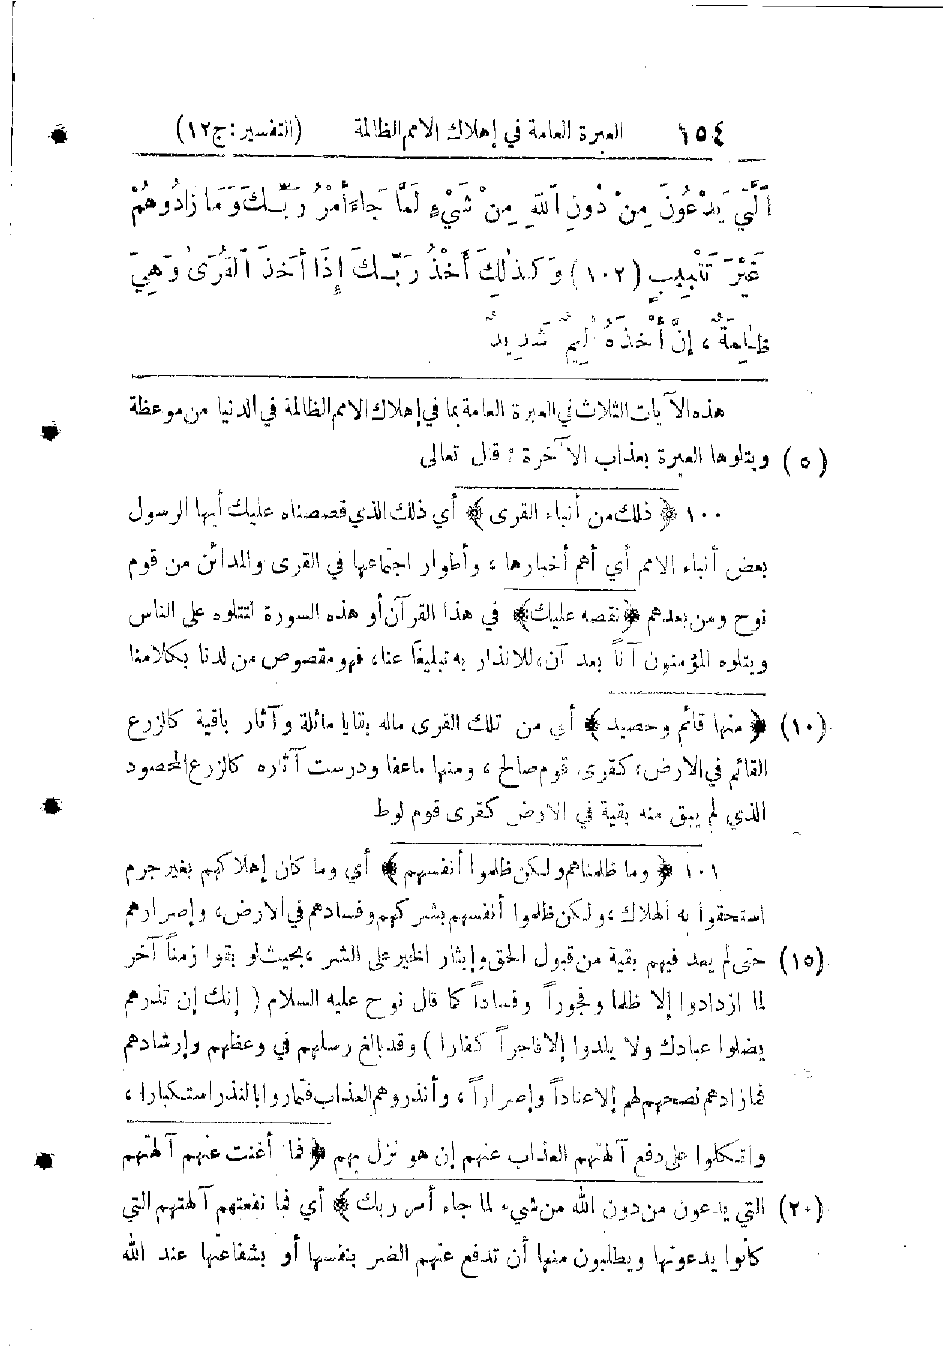 ١٥٤ العبرة العامة في إهلاك الامم الظالمة (التفسير: ج١٢)
ٱلَّتِي يَدْعُونَ مِنْ دُونِ ٱللهِ مِنْ شَيْءٍ لَمَّا جَاءَ أَمْرُ رَبِّكَ وَمَا زَادُوهُمْ
غَيْرَ تَتْبِيبٍ (١٠٢) وَكَذٰلِكَ أَخْذُ رَبِّكَ إِذَا أَخَذَ ٱلْقُرَىٰ وَهِيَ
ظَالِمَةٌ، إِنَّ أَخْذَهُ أَلِيمٌ شَدِيدٌ
هذه الآيات الثلاث في العبرة العامة بما في إهلاك الامم الظالمة في الدنيا من موعظة
(٥) ويتلوها العبرة بعذاب الآخرة: قال تعالى
١٠٠ ﴿ ذلك من أنباء القرى ﴾ أي ذلك الذي قصصناه عليك أيها الرسول
بعض أنباء الامم أي أهم أخبارها، وأطوار اجتماعها في القرى والمدائن من قوم
نوح ومن بعدهم ﴿نقصه عليك﴾ في هذا القرآن أو هذه السورة لتتلوه على الناس
ويتلوه المؤمنون آناً بعد آن، للانذار به تبليغا عنا، فهو مقصوص من لدنا بكلامنا
(١٠) ﴿ منها قائم وحصيد ﴾ أي من تلك القرى ماله بقايا ماثلة وآثار باقية كالزرع
القائم في الارض: كقرى قوم صالح، ومنها ماعفا ودرست آثاره كالزرع المحصود
الذي لم يبق منه بقية في الارض كقرى قوم لوط
١٠١ ﴿ وما ظلمناهم ولكن ظلموا أنفسهم ﴾ أي وما كان إهلاكهم بغير جرم
استحقوا به الهلاك، ولكن ظلموا أنفسهم بشركهم وفسادهم في الارض، وإصرارهم
(١٥) حتى لم يعد فيهم بقية من قبول الحق وإيثار الخير على الشر، بحيث لو بقوا زمناً آخر
لما ازدادوا إلا ظلما وفجوراً وفساداً كما قال نوح عليه السلام ( إنك إن تذرهم
يضلوا عبادك ولا يلدوا إلا فاجراً كفارا ) وقد بالغ رسلهم في وعظهم وإرشادهم
فما زادهم نصحهم لهم إلا عناداً وإصراراً، وأنذروهم العذاب فتماروا بالنذر استكبارا،
واتكلوا على دفع آلهتهم العذاب عنهم إن هو نزل بهم ﴿ فما أغنت عنهم آلهتهم
(٢٠) التي يدعون من دون الله من شيء لما جاء أمر ربك ﴾ أي فما نفعتهم آلهتهم التي
كانوا يدعونها ويطلبون منها أن تدفع عنهم الضر بنفسها أو بشفاعتها عند الله